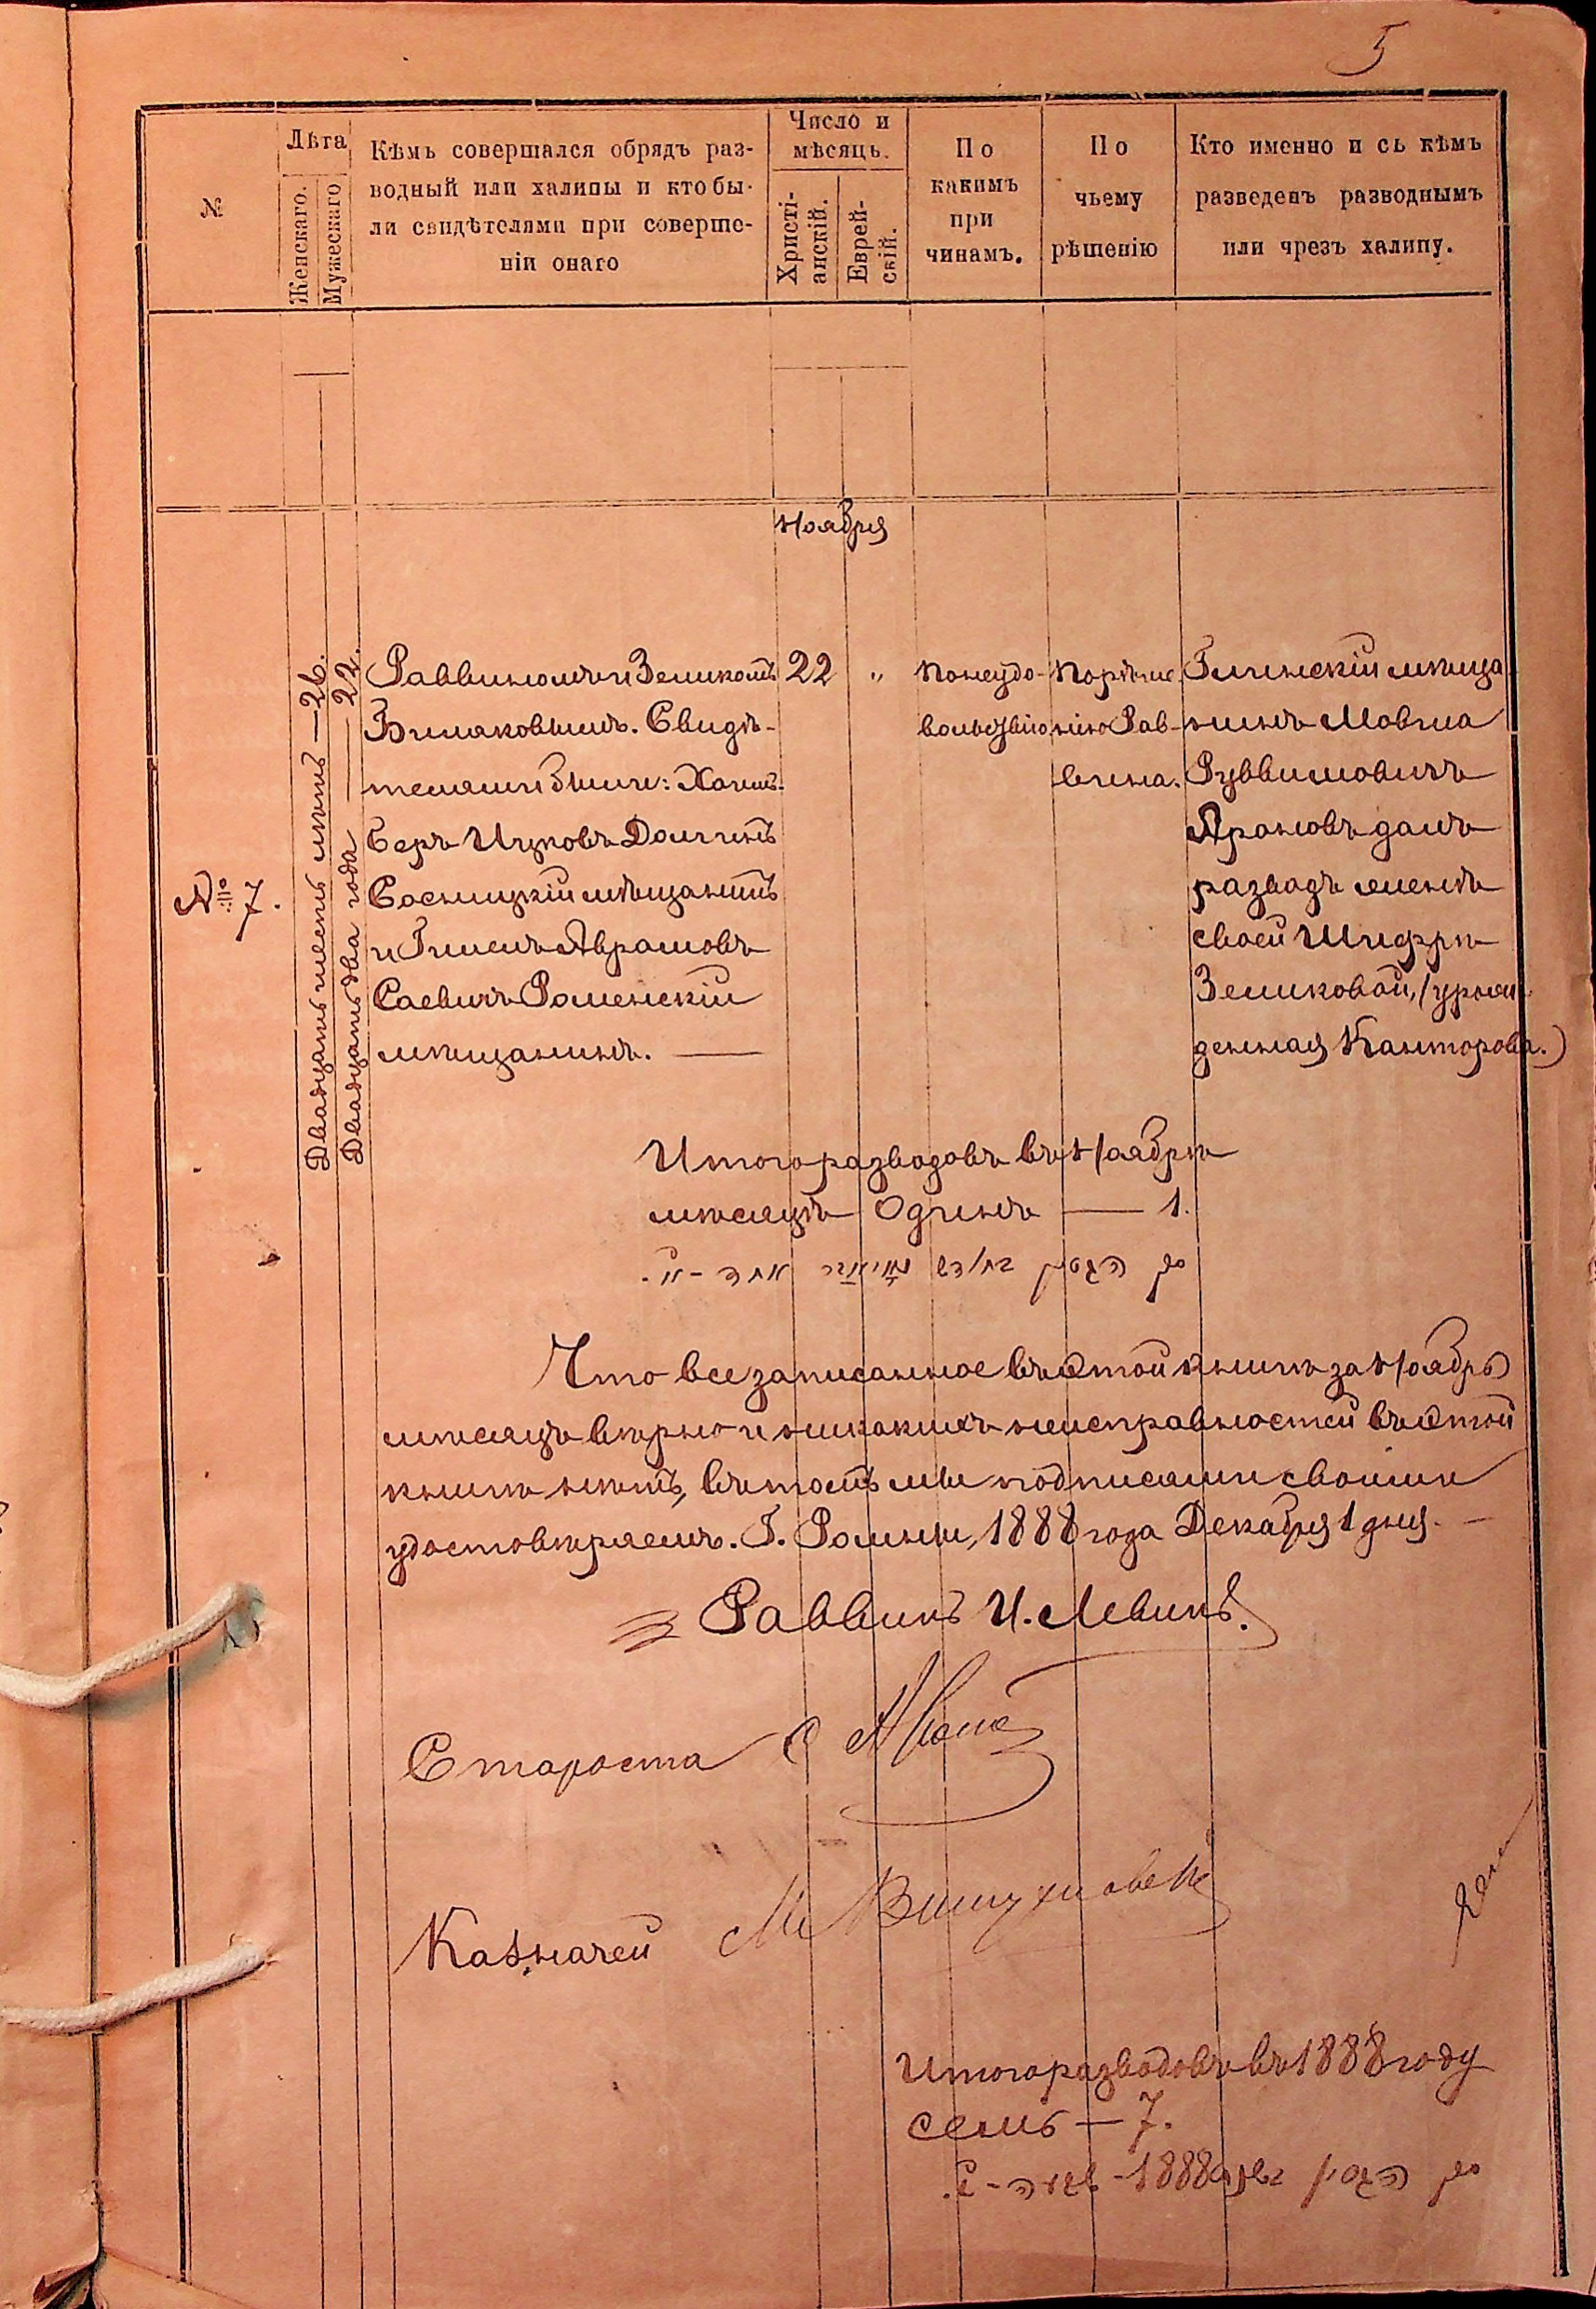 5
№
Лѣта
Женскаго.
Мужескаго
Кѣмъ совершался обрядъ раз-
водный или халицы и кто бы-
ли свидѣтелями при соверше-
ніи онаго
Число и
мѣсяцъ.
Христі-
анскій.
Еврей-
скій.
По
какимъ
при
чинамъ.
По
чьему
рѣшенію
Кто именно и съ кѣмъ
разведенъ разводнымъ
или чрезъ халицу.
Ноября
№ 7.
Двадцать шесть лѣтъ — 26.
Двадцать два года — 22.
Раввиномъ Зеликомъ
Свидѣ-
телями были: Хаимъ-
Беръ Ицковъ Долгинъ
Сосницкій мѣщанинъ
и Гилелъ Абрамовъ
Саевичъ Роменскій
мѣщанинъ. —
22
"
По неудо-
вольствію
По рѣше-
нію Рав-
вина.
Глинскій мѣща
нинъ Мовша
Рувимовичъ
Ароновъ далъ
разводъ женѣ
своей Шифрѣ
Зеликовой, (урож
денная Канторова.)
Итого разводовъ въ Ноябрѣ
мѣсяцѣ Одинъ — 1.
Что все записанное въ этой книгѣ за Ноябрь
мѣсяцъ вѣрно и никакихъ неисправностей въ этой
книгѣ нѣтъ, въ томъ мы подписями своими
удостовѣряемъ. Г. Ромны, 1888 года Декабря 1 дня. —
Раввинъ И. Левинъ.
Староста
Казначей М
Итого разводовъ въ 1888 году
семь — 7.
1888